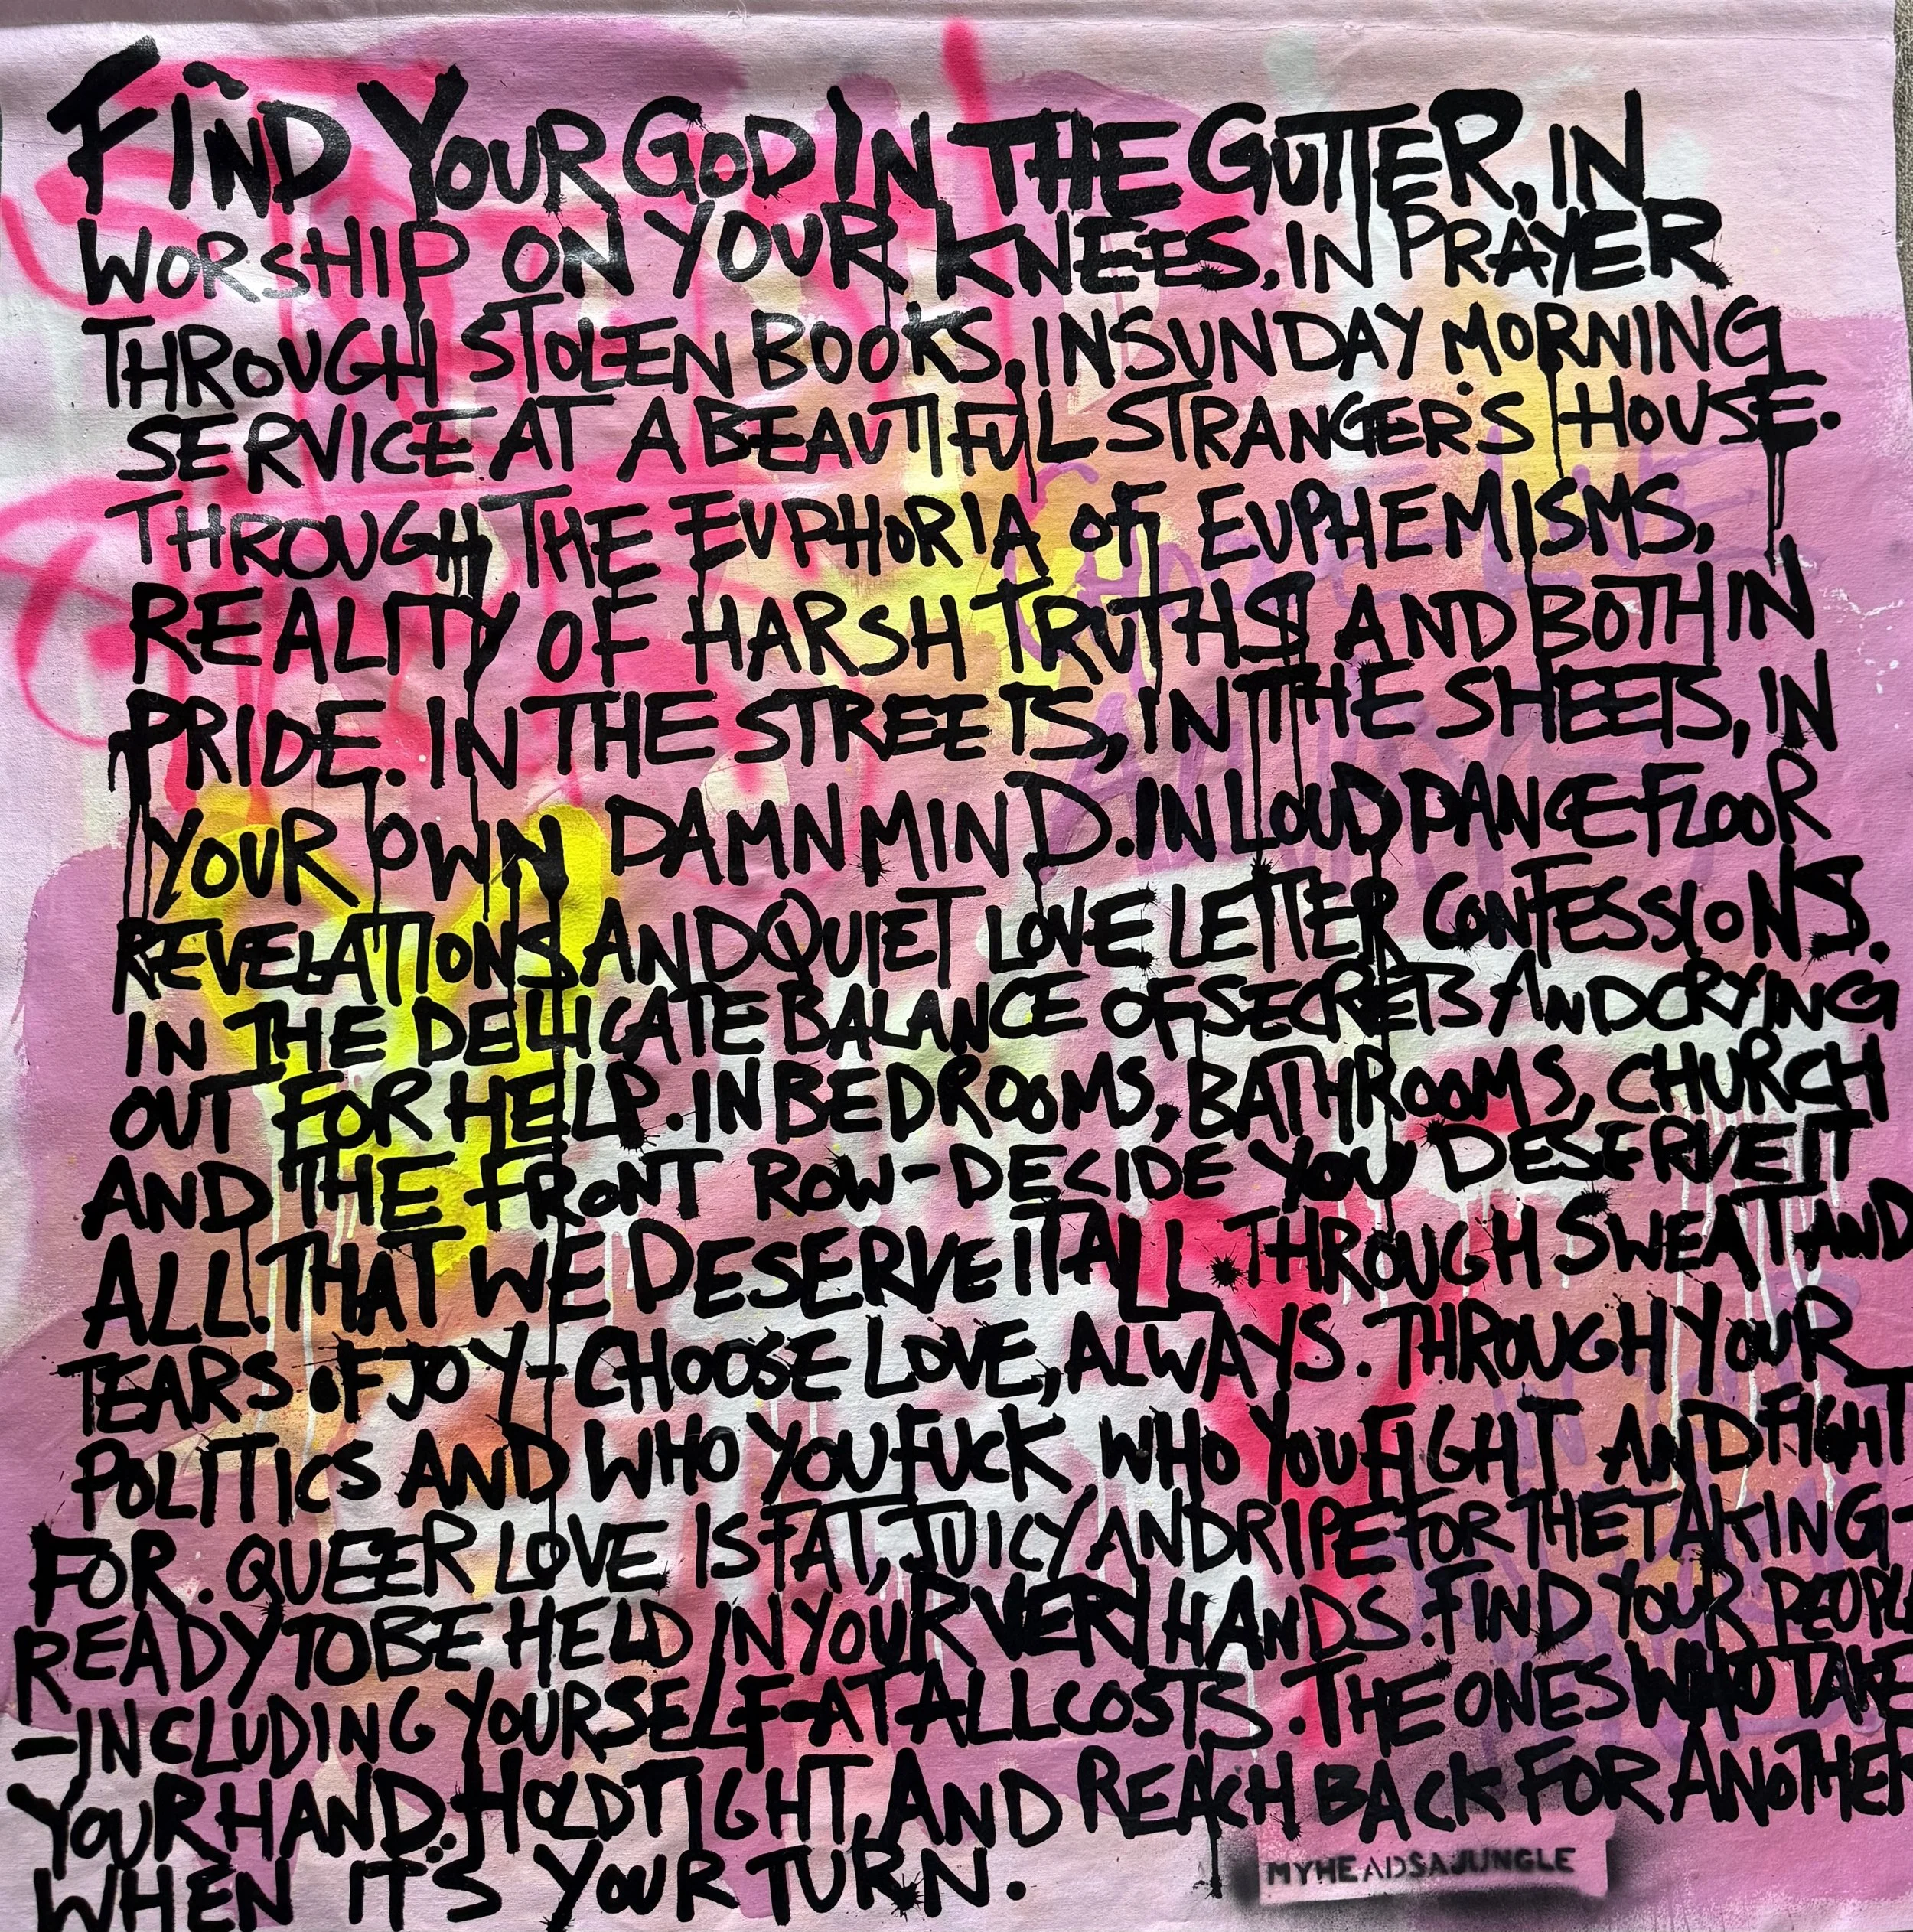 FIND YOUR GOD IN THE GUTTER, IN
WORSHIP ON YOUR KNEES, IN PRAYER
THROUGH STOLEN BOOKS, IN SUNDAY MORNING
SERVICE AT A BEAUTIFUL STRANGERS HOUSE.
THROUGH THE EUPHORIA OF EUPHEMISMS,
REALITY OF HARSH TRUTHS AND BOTH IN
PRIDE. IN THE STREETS, IN THE SHEETS, IN
YOUR OWN DAMN MIND. IN LOUD DANCE FLOOR
REVELATIONS AND QUIET LOVE LETTER CONFESSIONS.
IN THE DELICATE BALANCE OF SECRETS AND CRYING
OUT FOR HELP. IN BEDROOMS, BATHROOMS, CHURCH
AND THE FRONT ROW - DECIDE YOU DESERVE IT
ALL. THAT WE DESERVE IT ALL. THROUGH SWEAT AND
TEARS OF JOY - CHOOSE LOVE, ALWAYS. THROUGH YOUR
POLITICS AND WHO YOU FUCK WHO YOU FIGHT AND FIGHT
FOR. QUEER LOVE IS FAT, JUICY AND RIPE FOR THE TAKING -
READY TO BE HELD IN YOUR VERY HANDS. FIND YOUR PEOPLE
- INCLUDING YOURSELF - AT ALL COSTS. THE ONES WHO TAKE
YOUR HAND, HOLD TIGHT, AND REACH BACK FOR ANOTHER
WHEN IT'S YOUR TURN.
MYHEADSAJUNGLE